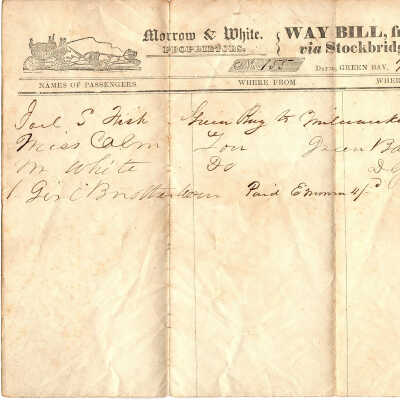 Morrow & White.
PROPRIETORS.
WAY BILL, f
via Stockbridg
DATED, GREEN BAY,
NAMES OF PASSENGERS
WHERE FROM
WHER
Joel S Fisk Green Bay to Milwauke
Miss Calm Green Ba
Mr White Do Do
1 Girl Paid 4/